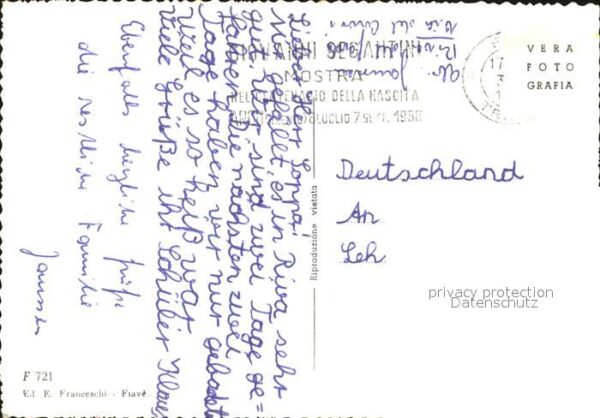 Lieber Herr Loppa!
Mir gefällt es in Riva sehr
gut. Wir sind zwei Tage ge=
fahren. Die nächsten zwei
Tage haben wir nur gebadet
weil es so heiß war.
Viele Grüße Ihr Schüler Klaus
Ebenfalls herzliche Grüße
die restliche Familie
Janssen
Riva
GIOVANNI SEGANTINI
MOSTRA
NEL CENTENARIO DELLA NASCITA
LUGLIO 7 SETT. 1958
17
VERA
FOTO
GRAFIA
Deutschland
An
Leh
Riproduzione vietata
privacy protection
Datenschutz
F 721
Ed. E. Franceschi - Fiavè